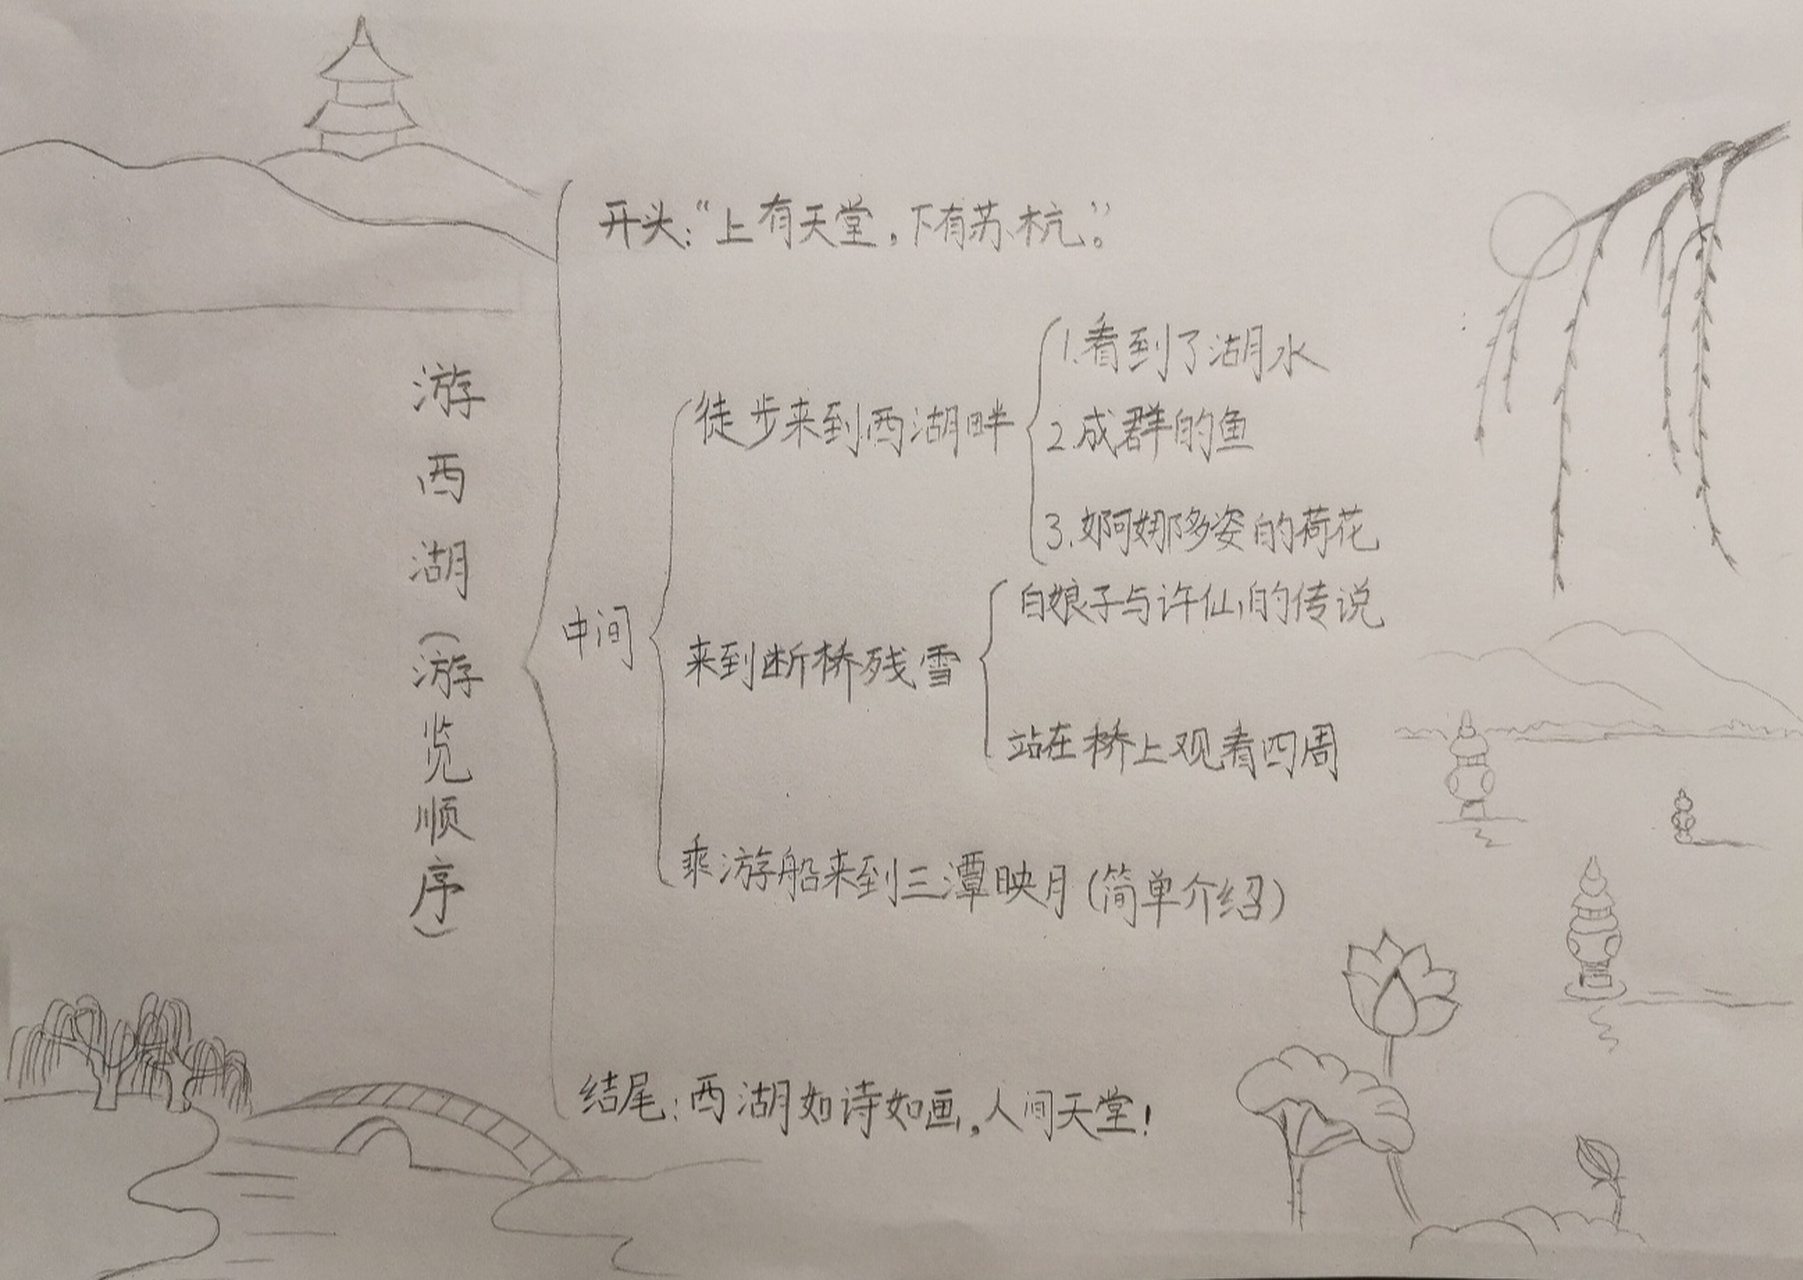 游西湖(游览顺序)
开头:“上有天堂,下有苏杭。”
中间
徒步来到西湖畔
1.看到了湖水
2.成群的鱼
3.婀娜多姿的荷花
来到断桥残雪
白娘子与许仙的传说
站在桥上观看四周
乘游船来到三潭映月(简单介绍)
结尾:西湖如诗如画,人间天堂!